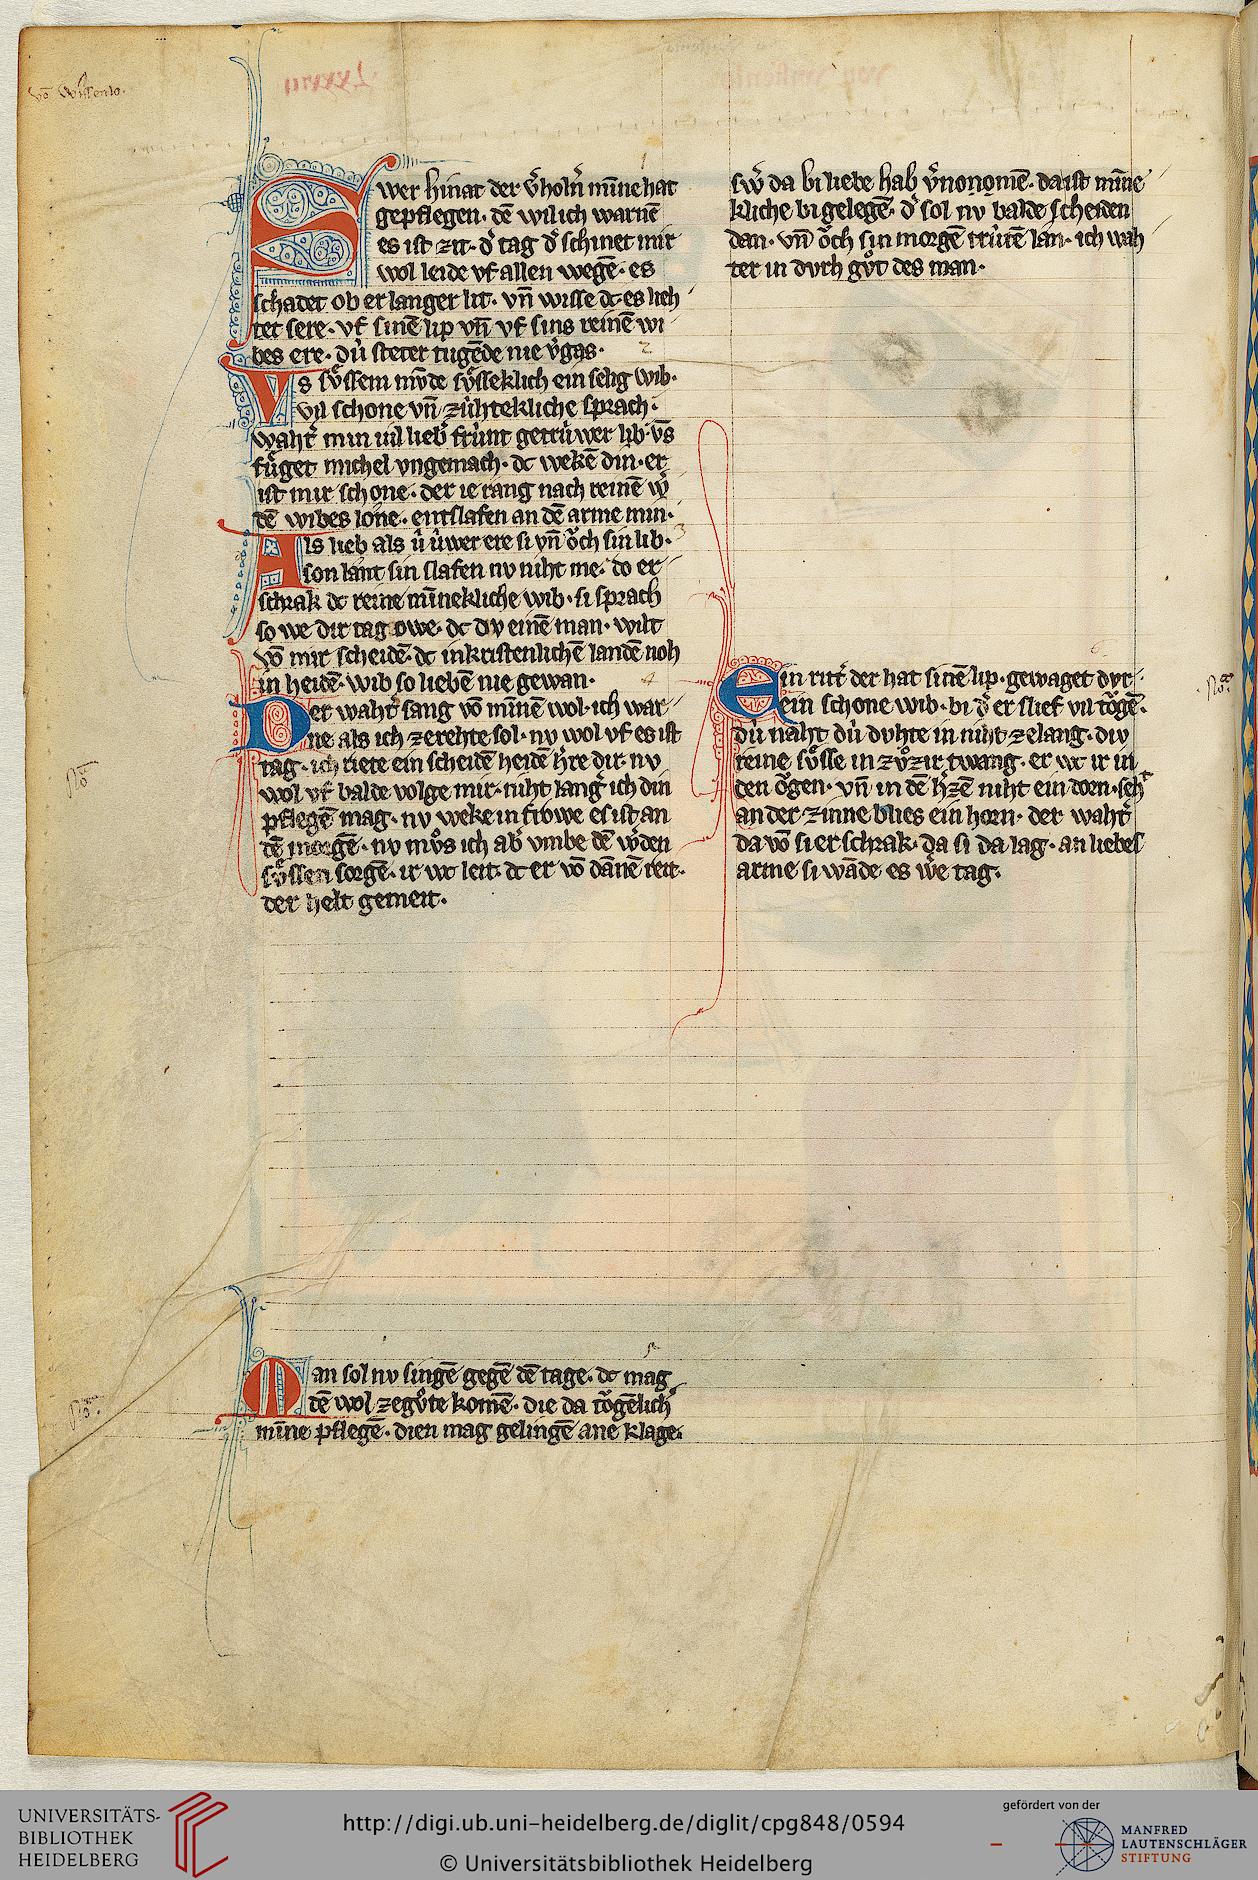 võ Wissenlo.
Swer hinat der v̾holn̾ mīne hat
gepflegen· dē wil ich warnē
es ist zit· d̾ tag d̾ schinet mir
wol leide vf allen wegē· es
schadet ob er langer lit· vn̄ wisse dc es lieh
tet sere· vf sinē lip vn̄ vf sins reinē wi
bes ere· dú steter tugēde nie v̾gas·
Vs sv̊ssem mvde sv̊sseklich ein selig wib·
vil schone vn̄ zúhtekliche sprach·
waht̾ min vil lieb̾ frúnt getrúwer lib· vns
fv̊get michel vngemach· dc wekē din· er
ist mir schone· der ie rang nach reinē w̾
dē wibes lone· entslafen an dē arme min·
Als lieb als ú úwer ere si vn̄ och sin lib·
son lant sin slafen nv niht me· do er
schrak dc reine mīnekliche wib· si sprach
so we dir tag owe· dc div einē man· wilt
võ mir scheidē· dc in kristenlichē landē noh
in heidē· wib so liebē nie gewan·
Der waht̾ sang võ mīnē wol· ich war
ne als ich ze rehte sol· nv wol vf es ist
tag· ich riete ein scheidē heidē h̾re dir· nv
wol vf balde volge mir· niht lang̾ ich din
pflegē mag· nv weke in frowe es ist an
dē morgē· nv mv̊s ich ab̾ vmbe dē w̾den
sv̊ssen sorgē· ir wc leit· dc er võ dānē reit·
der helt gemeit·
Man sol nv singē gegē dē tage· dc mag
dē wol ze gv̊te komē· die da tögēlich̾
mīne pflegē· dien mag gelingē ane klage·
sw̾ da bi liebe hab v̾nonomē· da ist mīne
kliche bi gelegē· d̾ sol nv balde scheiden
dan· vn̄ och sin morgē trútē lan· ich wah
ter in dvrh gv̊t des man·
Ein ritt̾ der hat sinē lip· gewaget dvr
ein schone wib· bi d̾ er slief vil tögē·
dú naht dú dvhte in niht ze lang· div
reine sv̊sse in zv̊zir twang· er wc ir in
den ögen· vn̄ in dē h̾zē niht ein dorn· seht
an der zinne blies ein horn· der waht̾
da võ si erschrak· da si da lag· an liebes
arme si wāde es w̾e tag·
UNIVERSITÄTS-
BIBLIOTHEK
HEIDELBERG
http://digi.ub.uni-heidelberg.de/diglit/cpg848/0594
© Universitätsbibliothek Heidelberg
gefördert von der
MANFRED
LAUTENSCHLÄGER
STIFTUNG